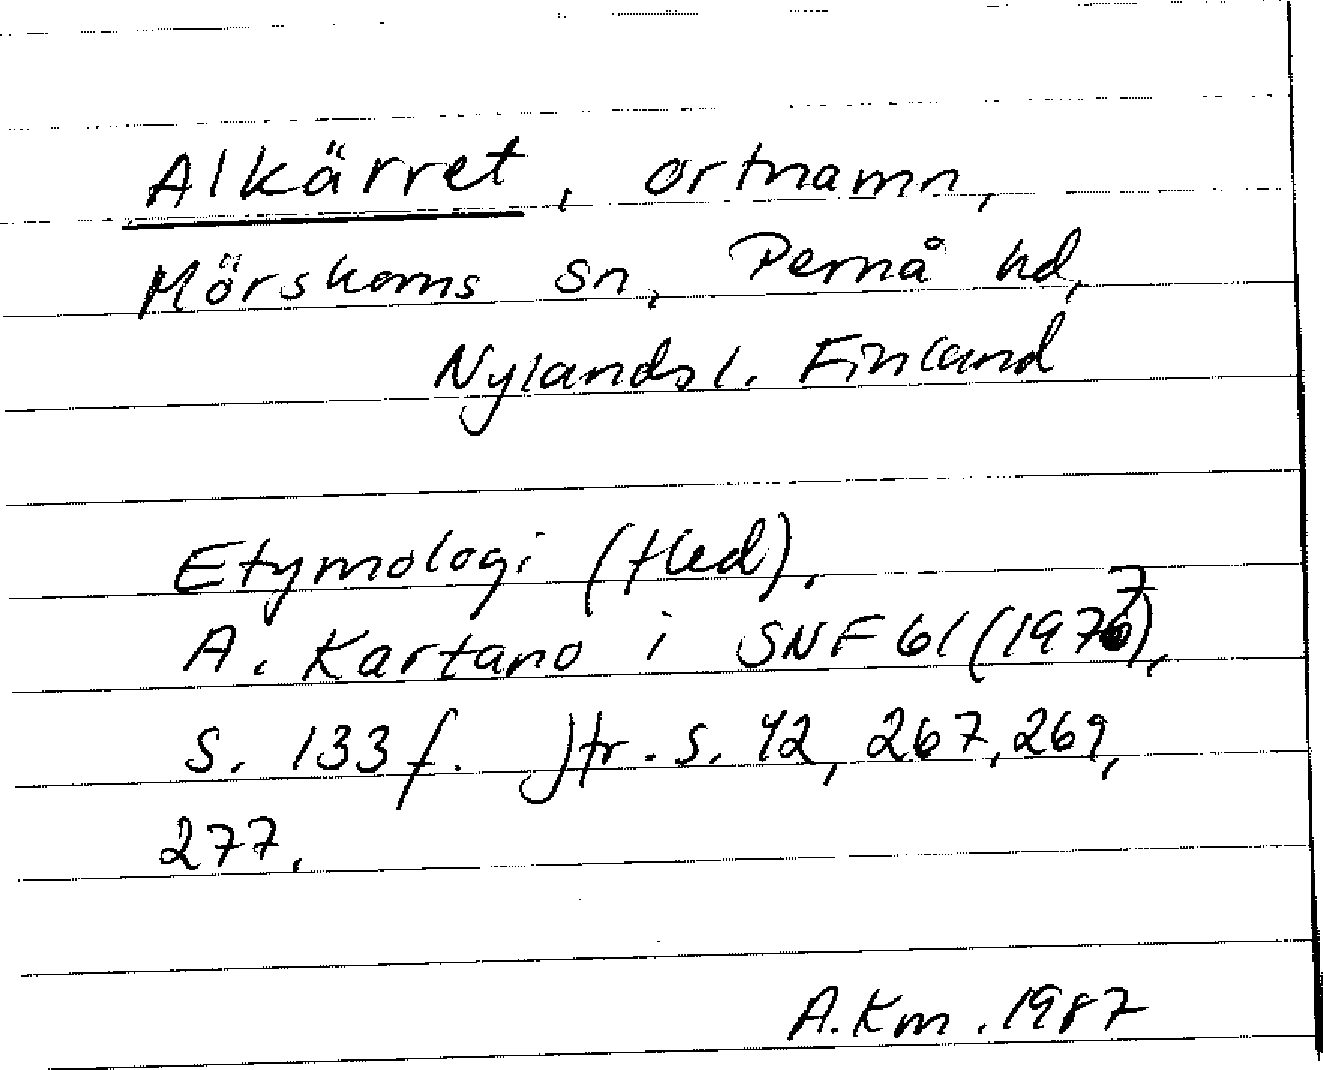 Alkärret, ortnamn,
Mörskoms sn, Pernå hd,
Nylands l. Finland
Etymologi (fled).
A. Kartano i SNF 61 (1977),
S. 133 f. Jfr. s. 42, 267, 269,
277.
A. Km. 1987